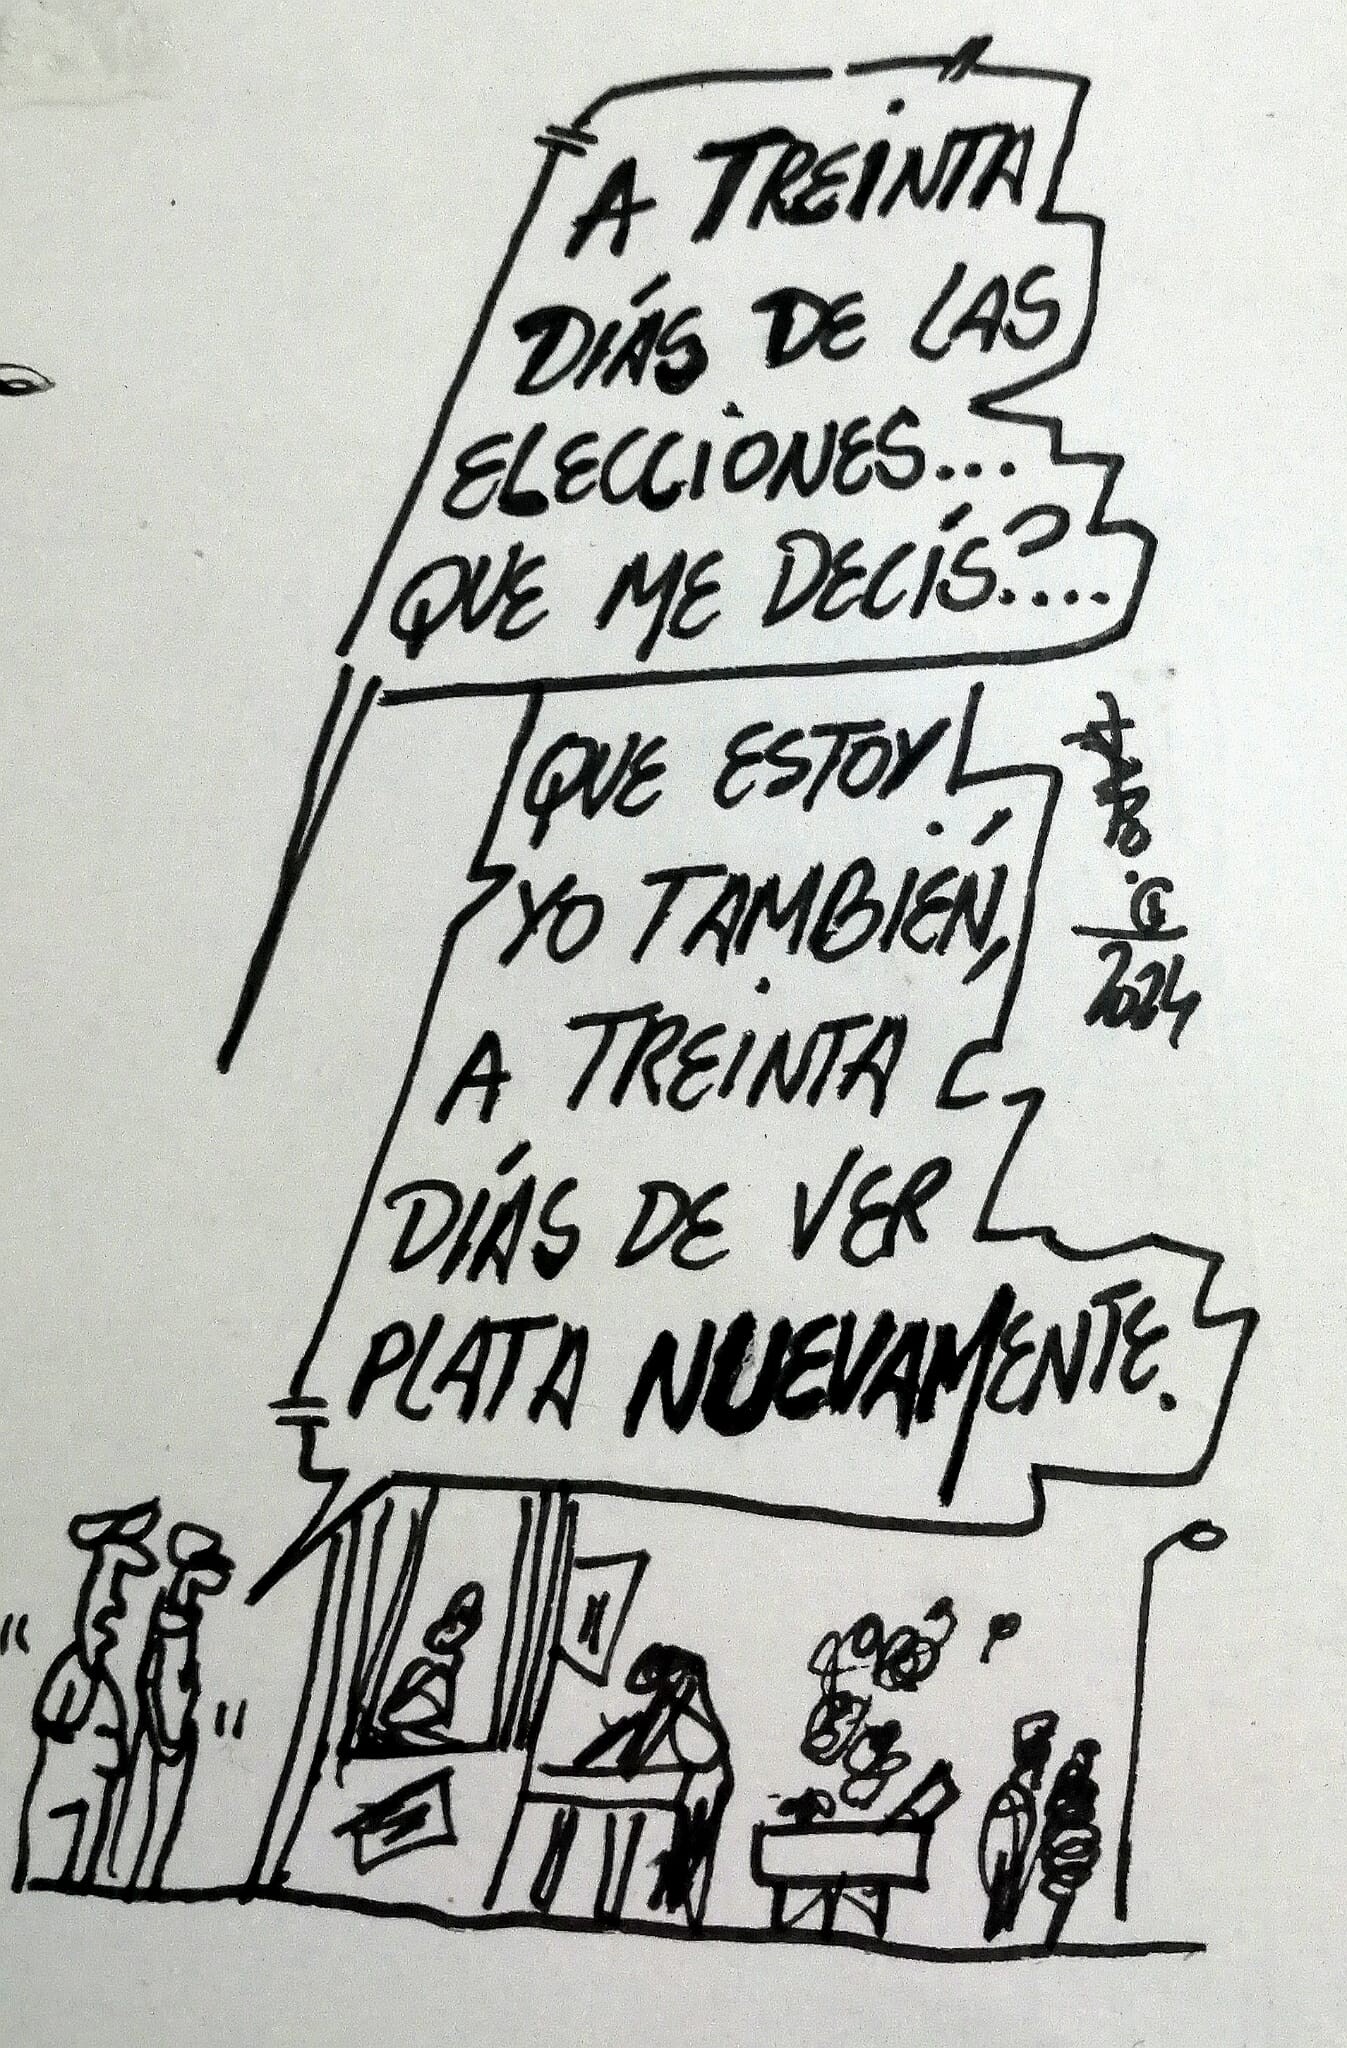 A TREINTA
DÍAS DE LAS
ELECCIONES...
QUE ME DECÍS?....
QUE ESTOY
YO TAMBIÉN,
A TREINTA
DÍAS DE VER
PLATA NUEVAMENTE.
2024